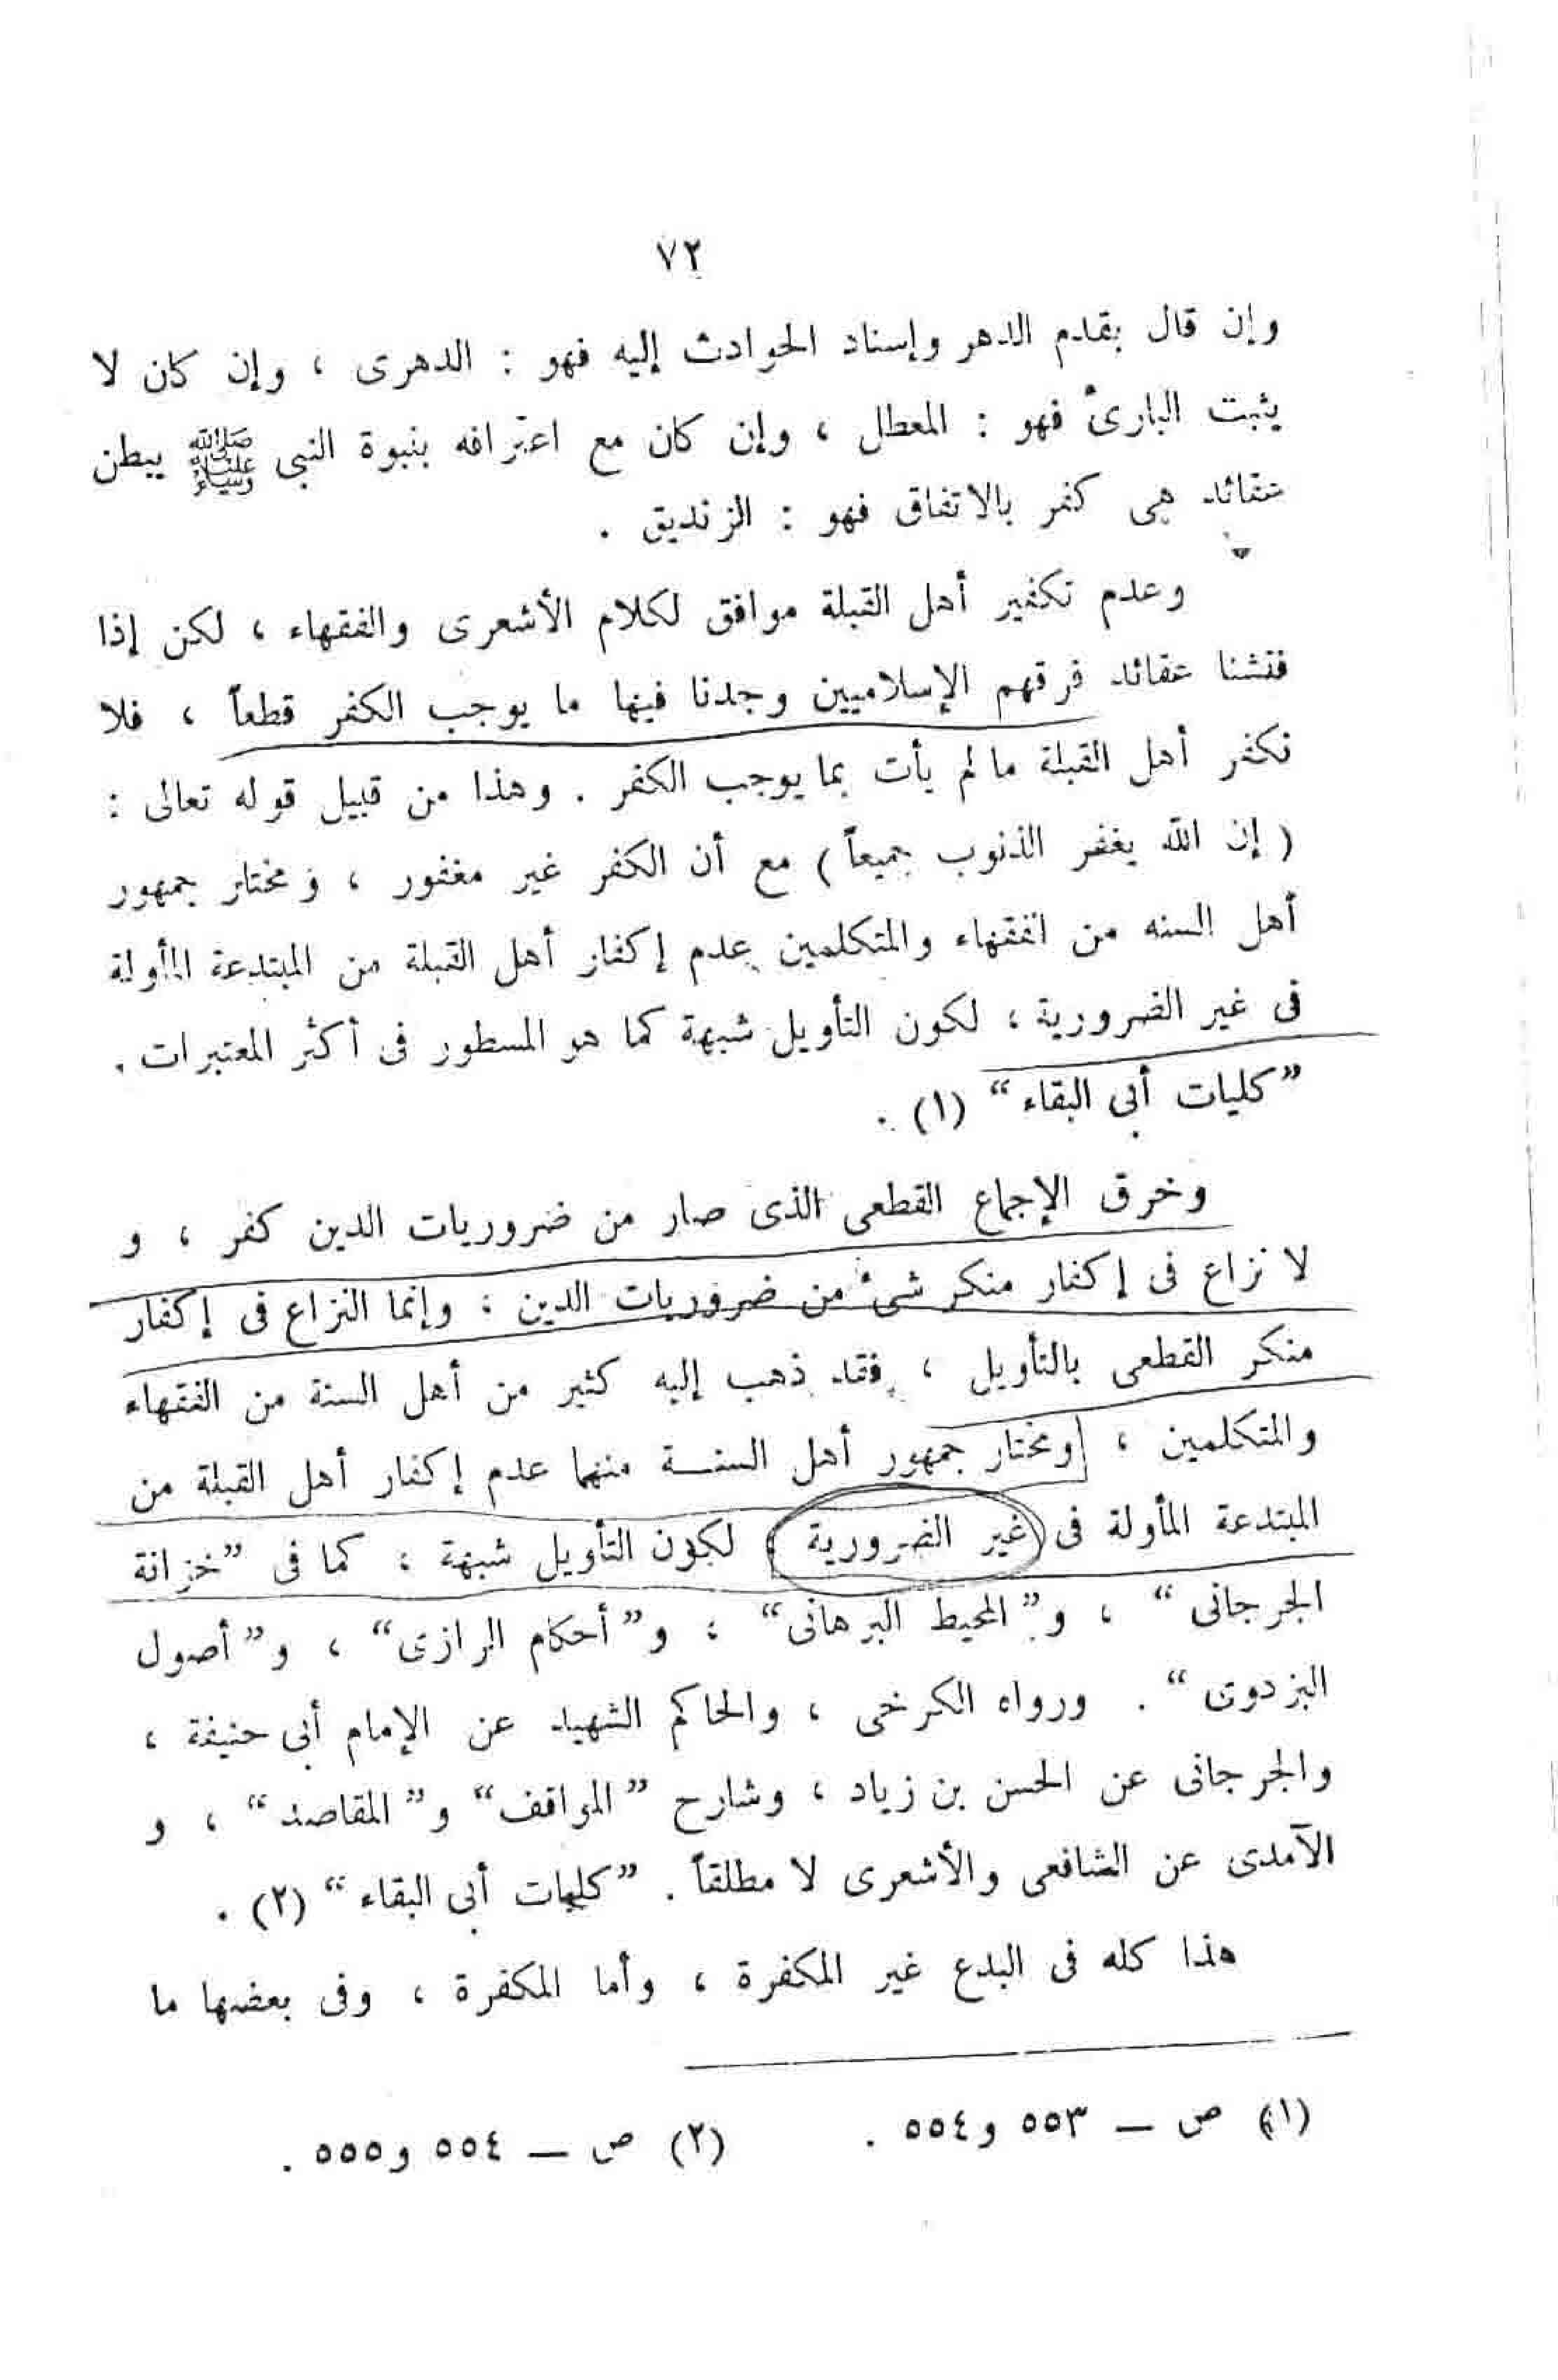 ٧٢
وإن قال بقدم الدهر وإسناد الحوادث إليه فهو : الدهرى ، وإن كان لا
يثبت البارئ فهو : المعطل ، وإن كان مع اعترافه بنبوة النبى ﷺ يبطن
عقائد هى كفر بالاتفاق فهو : الزنديق .
وعدم تكفير أهل القبلة موافق لكلام الأشعرى والفقهاء ، لكن إذا
فتشنا عقائد فرقهم الإسلاميين وجدنا فيها ما يوجب الكفر قطعاً ، فلا
نكفر أهل القبلة ما لم يأت بما يوجب الكفر . وهذا من قبيل قوله تعالى :
( إن الله يغفر الذنوب جميعاً ) مع أن الكفر غير مغفور ، ومختار جمهور
أهل السنه من الفقهاء والمتكلمين عدم إكفار أهل القبلة من المبتدعة المأولة
فى غير الضرورية ، لكون التأويل شبهة كما هو المسطور فى أكثر المعتبرات .
”كليات أبى البقاء“ (١) .
وخرق الإجماع القطعى الذى صار من ضروريات الدين كفر ، و
لا نزاع فى إكفار منكر شئ من ضروريات الدين ، وإنما النزاع فى إكفار
منكر القطعى بالتأويل ، فقد ذهب إليه كثير من أهل السنة من الفقهاء
والمتكلمين ، ومختار جمهور أهل السنــة منهما عدم إكفار أهل القبلة من
المبتدعة المأولة فى غير الضرورية ، لكون التأويل شبهة ، كما فى ”خزانة
الجرجانى“ ، و”المحيط البرهانى“ ، و”أحكام الرازى“ ، و”أصول
البزدوى“ . ورواه الكرخى ، والحاكم الشهيد عن الإمام أبى حنيفة ،
والجرجانى عن الحسن بن زياد ، وشارح ”المواقف“ و”المقاصد“ ، و
الآمدى عن الشافعى والأشعرى لا مطلقاً . ”كليات أبى البقاء“ (٢) .
هذا كله فى البدع غير المكفرة ، وأما المكفرة ، وفى بعضها ما
(١) ص — ٥٥٣ و٥٥٤ . (٢) ص — ٥٥٤ و٥٥٥ .